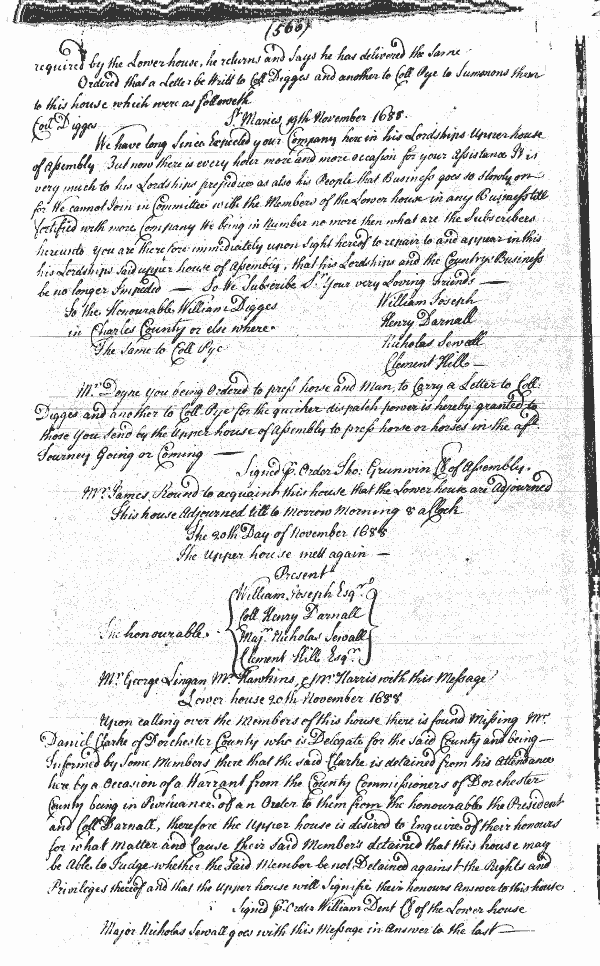 (566)
required by the Lower house, he returns and Says he has delivered the Same
Ordered that a Letter be Writt to Coll Digges and another to Coll Pye to Summons them
to this house which were as followeth
St Maries 19th November 1688.
Coll Digges
We have long Since Expected your Company here in his Lordships Upper house
of Assembly But now there is every hour more and more occasion for your Assistance It is
very much to his Lordships prejudice as also his People that Business goes so Slowly on
for We cannot Join in Committee with the Members of the Lower house in any Business till
fortified with more Company We being in Number no more then what are the Subscribers
hereunto you are therefore immediately upon Sight hereof to repair to and appear in this
his Lordships Said upper house of Assembly, that his Lordships and the Countrys Business
be no longer Impeded — So We Subscribe Sr Your very Loving Friends —
To the Honourable William Digges William Joseph
in Charles County or else where Henry Darnall
The Same to Coll Pye Nicholas Sewall
Clement Hill —
Mr Doyne You being Ordered to press horse and Man, to Carry a Letter to Coll
Digges and another to Coll Pye for the quicker dispatch power is hereby granted to
those You Send by the Upper house of Assembly to press horse or horses in the afd
Journey Going or Coming —
Signed p. Order Tho: Grunwin Cl of Assembly.
Mr James Round to acquaint this house that the Lower house are adjourned
This house Adjourned till to Morrow Morning 8 a Clock
The 20th Day of November 1688
The Upper house mett again —
Present
The honourable. William Joseph Esqr.
Coll Henry Darnall
Majr Nicholas Sewall
Clement Hill Esqr.
Mr George Lingan Mr Hawkins, & Mr Harris with this Message
Lower house 20th November 1688
Upon calling over the Members of this house there is found Missing Mr
Daniel Clarke of Dorchester County who is Delegate for the Said County and being —
Informed by Some Members there that the Said Clarke is detained from his Attendance
here by a Occasion of a Warrant from the County Commissioners of Dorchester
County being in Persuance of an Order to them from the honourable the President
and Coll Darnall, therefore the Upper house is desired to Enquire of their honours
for what Matter and Cause their Said Member's detained that this house may
be Able to Judge whether the Said Member be not Detained against the Rights and
Privileges thereof and that the Upper house will Signifie their honours Answer to this house
Signed p. Order William Dent Cl of the Lower house
Major Nicholas Sewall goes with this Message in Answer to the last —